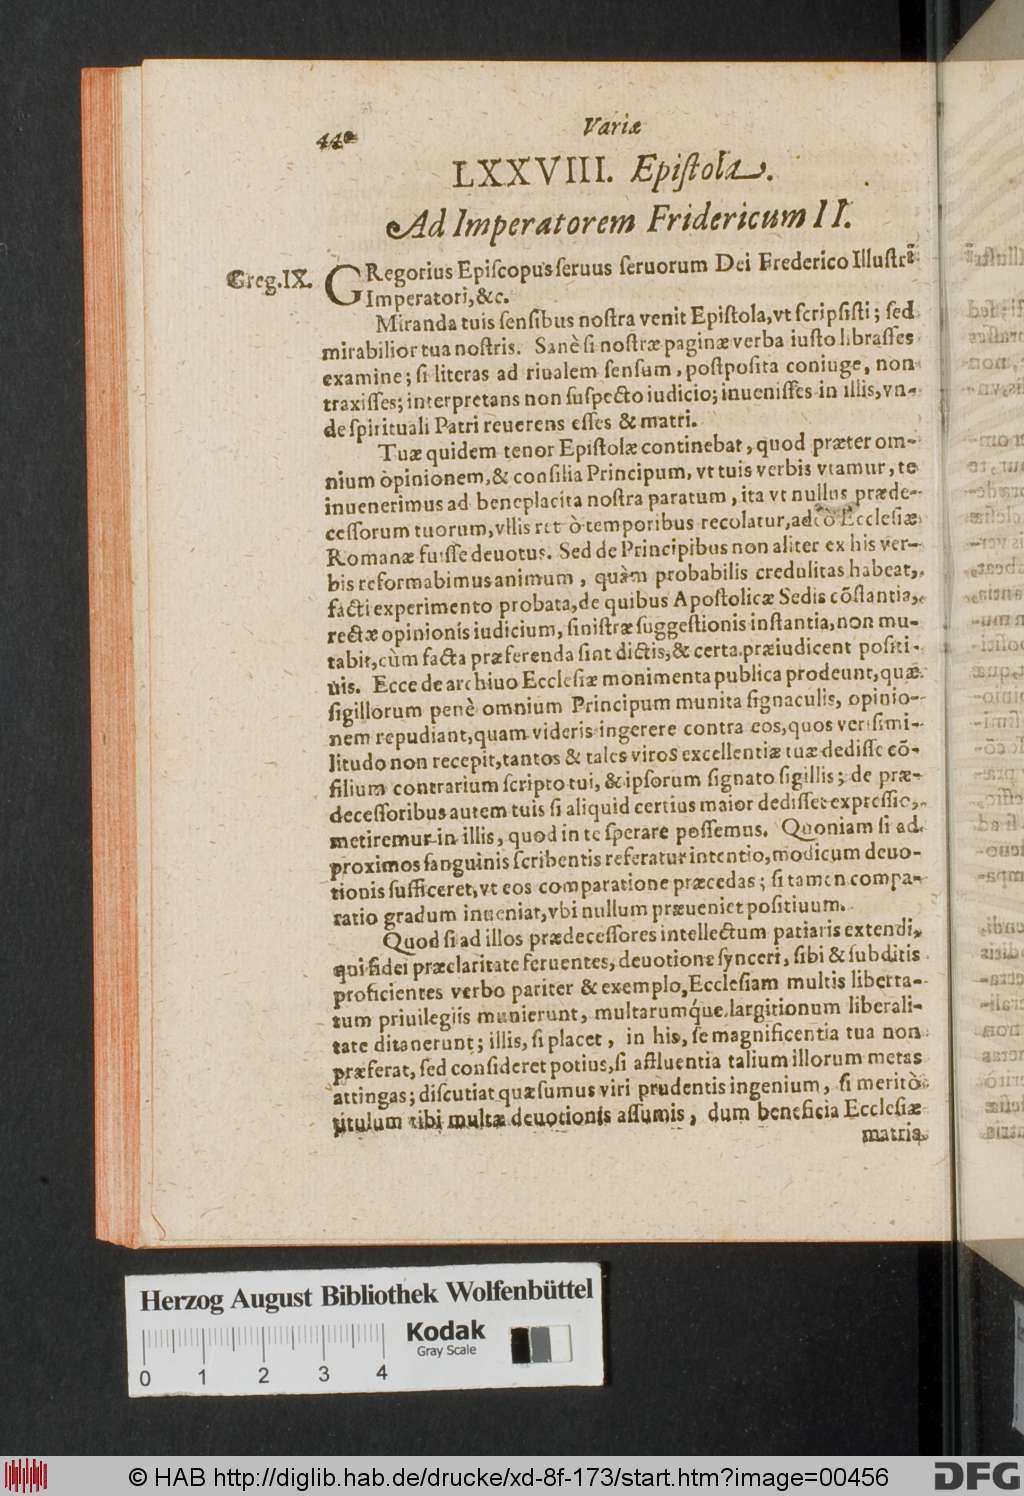 Variæ
440
LXXVIII. Epistola.
Ad Imperatorem Fridericum II.
Greg. IX.
GRegorius Episcopus seruus seruorum Dei Frederico Illustrĩ
Imperatori, &c.
Miranda tuis sensibus nostra venit Epistola, vt scripsisti; sed
mirabilior tua nostris. Sanè si nostræ paginæ verba iusto librasses
examine; si literas ad riualem sensum, postposita coniuge, non
traxisses; interpretans non suspecto iudicio; inuenisses in illis, vn-
de spirituali Patri reuerens esses & matri.
Tuæ quidem tenor Epistolæ continebat, quod præter om-
nium opinionem, & consilia Principum, vt tuis verbis vtamur, te
inuenerimus ad beneplacita nostra paratum, ita vt nullus præde-
cessorum tuorum, vllis retrò temporibus recolatur, adeò Ecclesiæ
Romanæ fuisse deuotus. Sed de Principibus non aliter ex his ver-
bis reformabimus animum, quàm probabilis credulitas habeat,
facti experimento probata, de quibus Apostolicæ Sedis cõstantia,
rectæ opinionis iudicium, sinistræ suggestionis instantia, non mu-
tabit, cùm facta præferenda sint dictis, & certa præiudicent positi-
uis. Ecce de archiuo Ecclesiæ monimenta publica prodeunt, quæ
sigillorum penè omnium Principum munita signaculis, opinio-
nem repudiant, quam videris ingerere contra eos, quos verisimi-
litudo non recepit, tantos & tales viros excellentiæ tuæ dedisse cõ-
silium contrarium scripto tui, & ipsorum signato sigillis; de præ-
decessoribus autem tuis si aliquid certius maior dedisset expressio,
metiremur in illis, quod in te sperare possemus. Quoniam si ad
proximos sanguinis scribentis referatur intentio, modicum deuo-
tionis sufficeret, vt eos comparatione præcedas; si tamen compa-
ratio gradum inueniat, vbi nullum præueniet positiuum.
Quod si ad illos prædecessores intellectum patiaris extendi,
qui fidei præclaritate feruentes, deuotione synceri, sibi & subditis
proficientes verbo pariter & exemplo, Ecclesiam multis liberta-
tum priuilegiis munierunt, multarumq́ue largitionum liberali-
tate ditauerunt; illis, si placet, in his, se magnificentia tua non
præferat, sed consideret potius, si affluentia talium illorum metas
attingas; discutiat quæsumus viri prudentis ingenium, si meritò
titulum tibi multæ deuotionis assumis, dum beneficia Ecclesiæ
matris
Herzog August Bibliothek Wolfenbüttel
Kodak
Gray Scale
0 1 2 3 4
© HAB http://diglib.hab.de/drucke/xd-8f-173/start.htm?image=00456
DFG